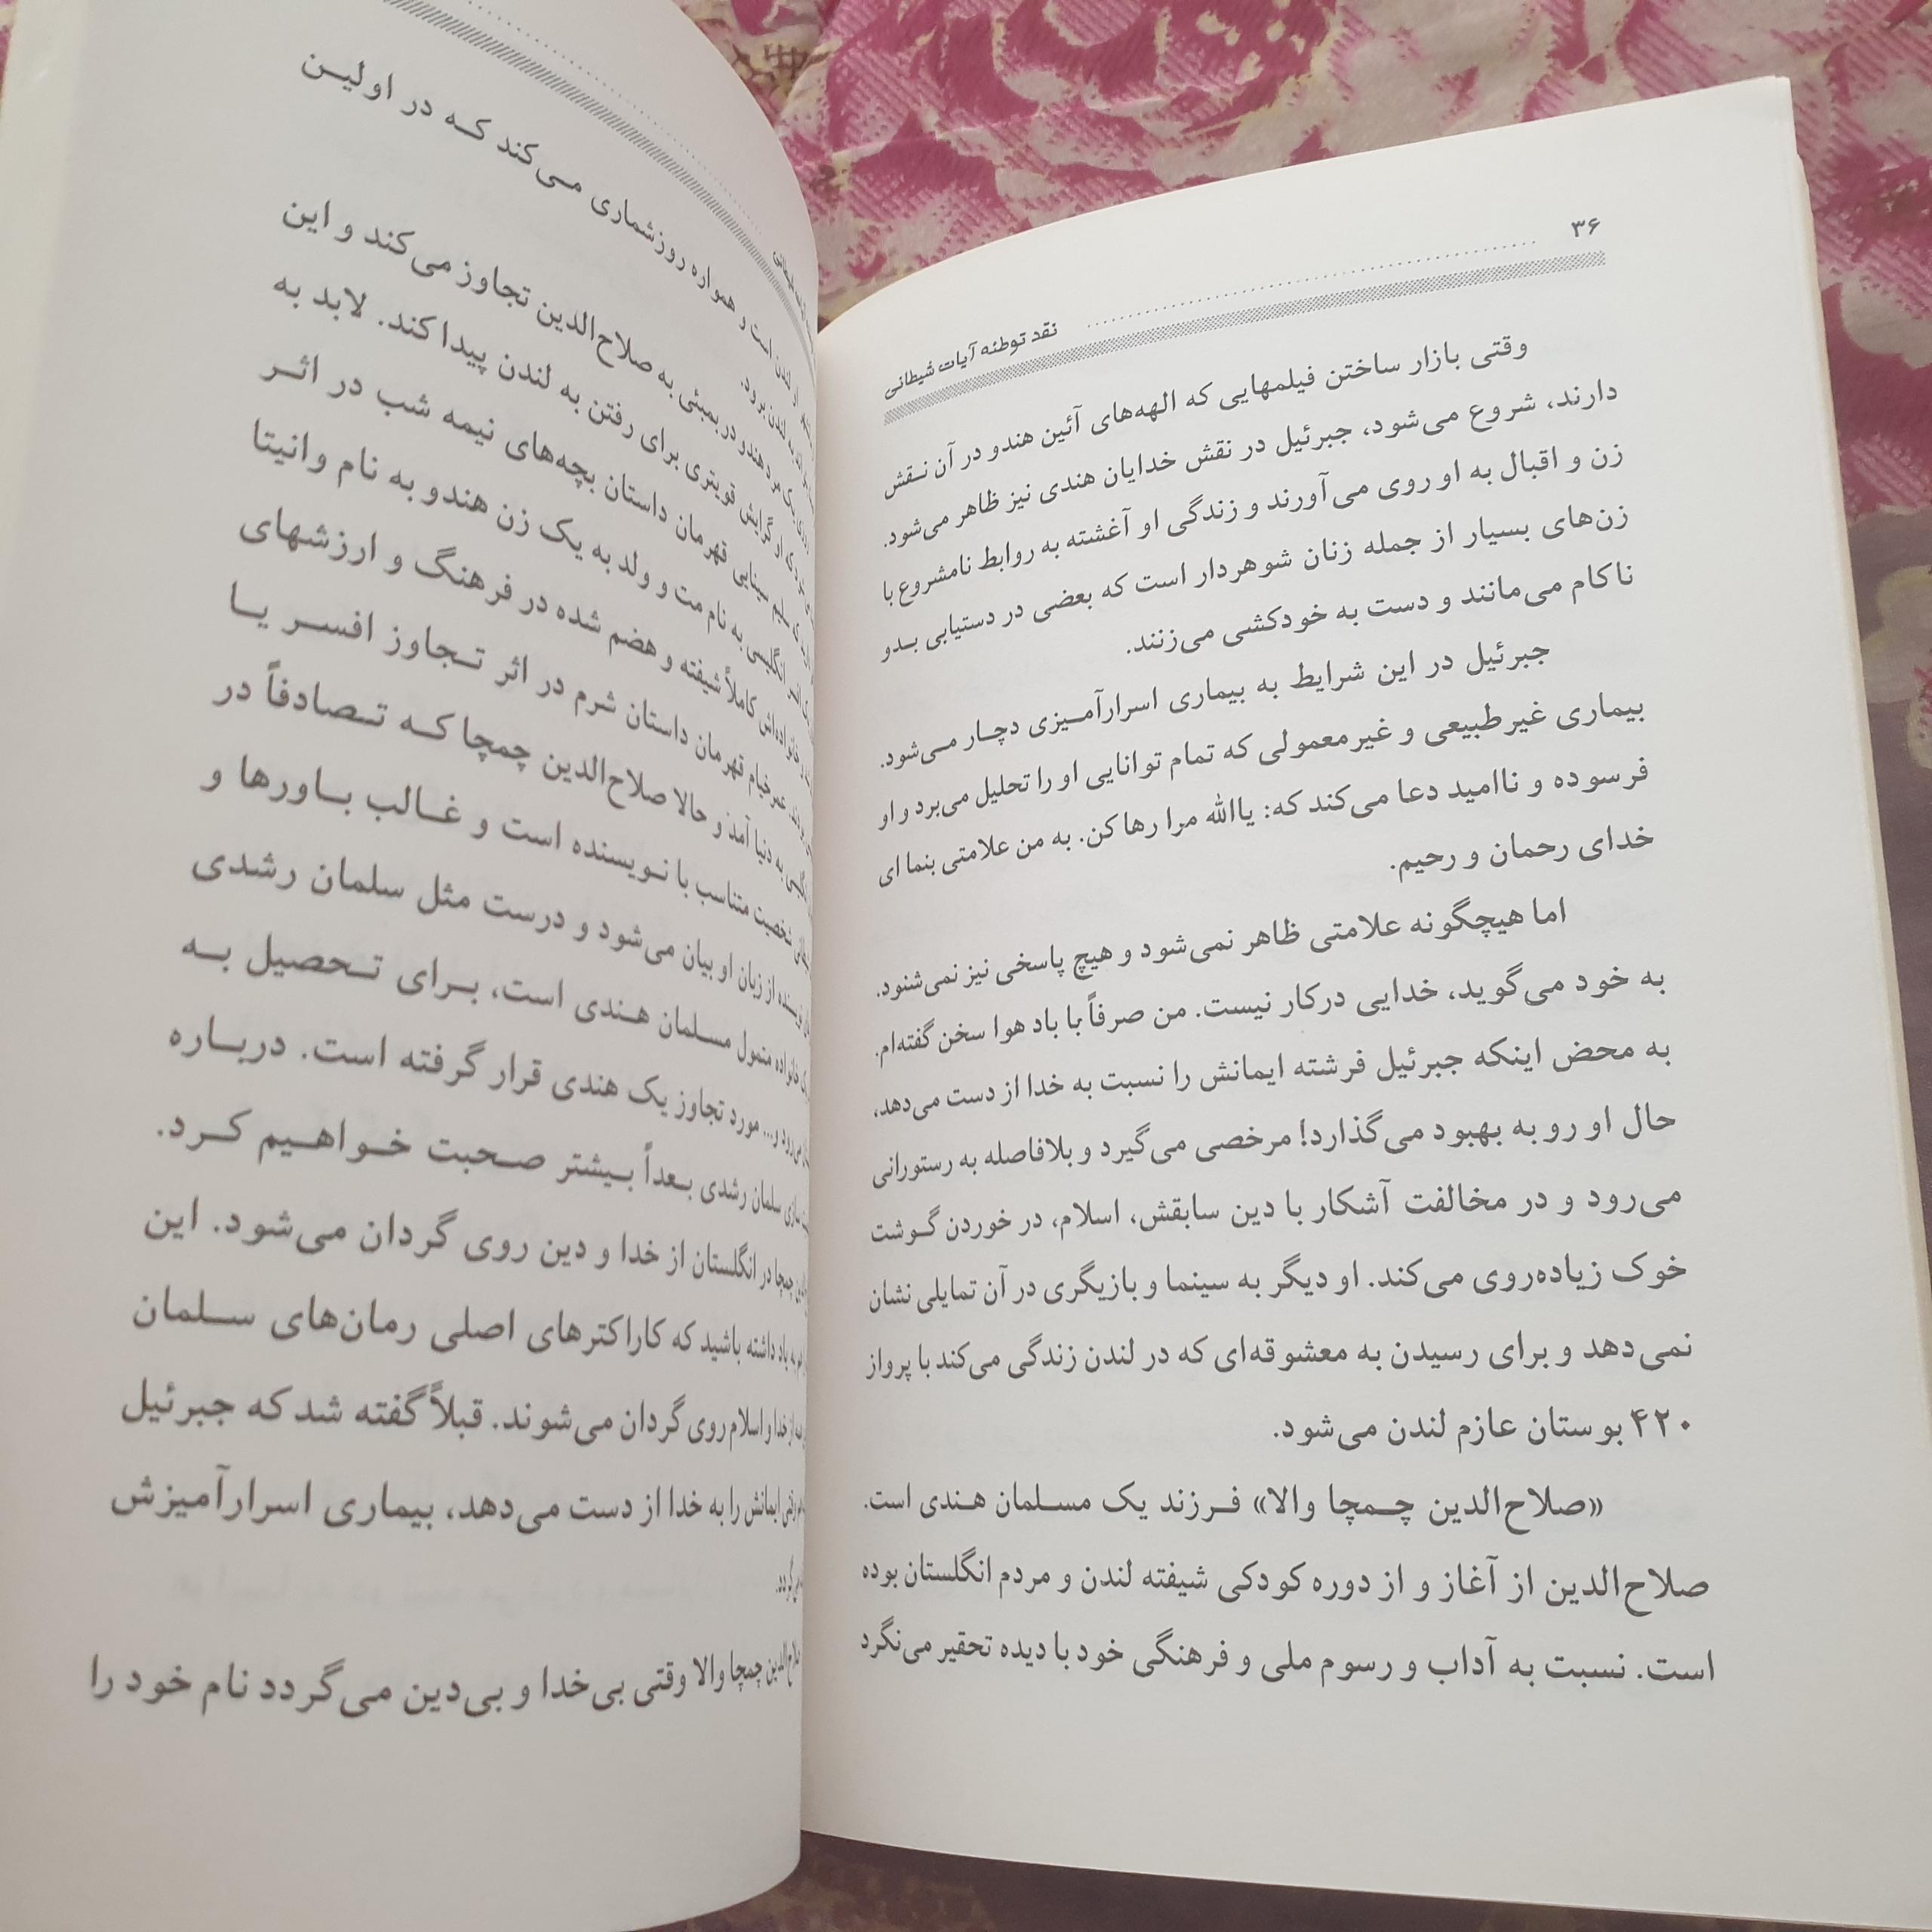 ۳۶
نقد توطئه آیات شیطانی
وقتی بازار ساختن فیلمهایی که الهه‌های آئین هندو در آن نقش
دارند، شروع می‌شود، جبرئیل در نقش خدایان هندی نیز ظاهر می‌شود.
زن و اقبال به او روی می‌آورند و زندگی او آغشته به روابط نامشروع با
زن‌های بسیار از جمله زنان شوهردار است که بعضی در دستیابی بدو
ناکام می‌مانند و دست به خودکشی می‌زنند.
جبرئیل در این شرایط به بیماری اسرارآمیزی دچار می‌شود.
بیماری غیرطبیعی و غیرمعمولی که تمام توانایی او را تحلیل می‌برد و او
فرسوده و ناامید دعا می‌کند که: یاالله مرا رها کن. به من علامتی بنما ای
خدای رحمان و رحیم.
اما هیچگونه علامتی ظاهر نمی‌شود و هیچ پاسخی نیز نمی‌شنود.
به خود می‌گوید، خدایی درکار نیست. من صرفاً با باد هوا سخن گفته‌ام.
به محض اینکه جبرئیل فرشته ایمانش را نسبت به خدا از دست می‌دهد،
حال او رو به بهبود می‌گذارد! مرخصی می‌گیرد و بلافاصله به رستورانی
می‌رود و در مخالفت آشکار با دین سابقش، اسلام، در خوردن گوشت
خوک زیاده‌روی می‌کند. او دیگر به سینما و بازیگری در آن تمایلی نشان
نمی‌دهد و برای رسیدن به معشوقه‌ای که در لندن زندگی می‌کند با پرواز
۴۲۰ بوستان عازم لندن می‌شود.
«صلاح‌الدین چمچا والا» فرزند یک مسلمان هندی است.
صلاح‌الدین از آغاز و از دوره کودکی شیفته لندن و مردم انگلستان بوده
است. نسبت به آداب و رسوم ملی و فرهنگی خود با دیده تحقیر می‌نگرد
لندن است و همواره روزشماری می‌کند که در اولین
به لندن برود.
یک مرد هندو در بمبئی به صلاح‌الدین تجاوز می‌کند و این
او گرایش قویتری برای رفتن به لندن پیدا کند. لابد به
سلیم سینایی قهرمان داستان بچه‌های نیمه شب در اثر
انگلیسی به نام مت و ولد به یک زن هندو به نام وانیتا
خانواده‌اش کاملاً شیفته و هضم شده در فرهنگ و ارزشهای
عمرخیام قهرمان داستان شرم در اثر تجاوز افسر یا
به دنیا آمد و حالا صلاح‌الدین چمچا که تصادفاً در
شخصیت متناسب با نویسنده است و غالب باورها و
نویسنده از زبان او بیان می‌شود و درست مثل سلمان رشدی
خانواده متمول مسلمان هندی است، برای تحصیل به
می‌رود و... مورد تجاوز یک هندی قرار گرفته است. درباره
سازی سلمان رشدی بعداً بیشتر صحبت خواهیم کرد.
چمچا در انگلستان از خدا و دین روی گردان می‌شود. این
به یاد داشته باشید که کاراکترهای اصلی رمان‌های سلمان
از خدا و اسلام روی گردان می‌شوند. قبلاً گفته شد که جبرئیل
وقتی ایمانش را به خدا از دست می‌دهد، بیماری اسرارآمیزش
صلاح‌الدین چمچا والا وقتی بی‌خدا و بی‌دین می‌گردد نام خود را